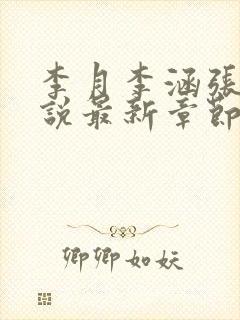 李月李涵張
說最新章節
卿卿如妖